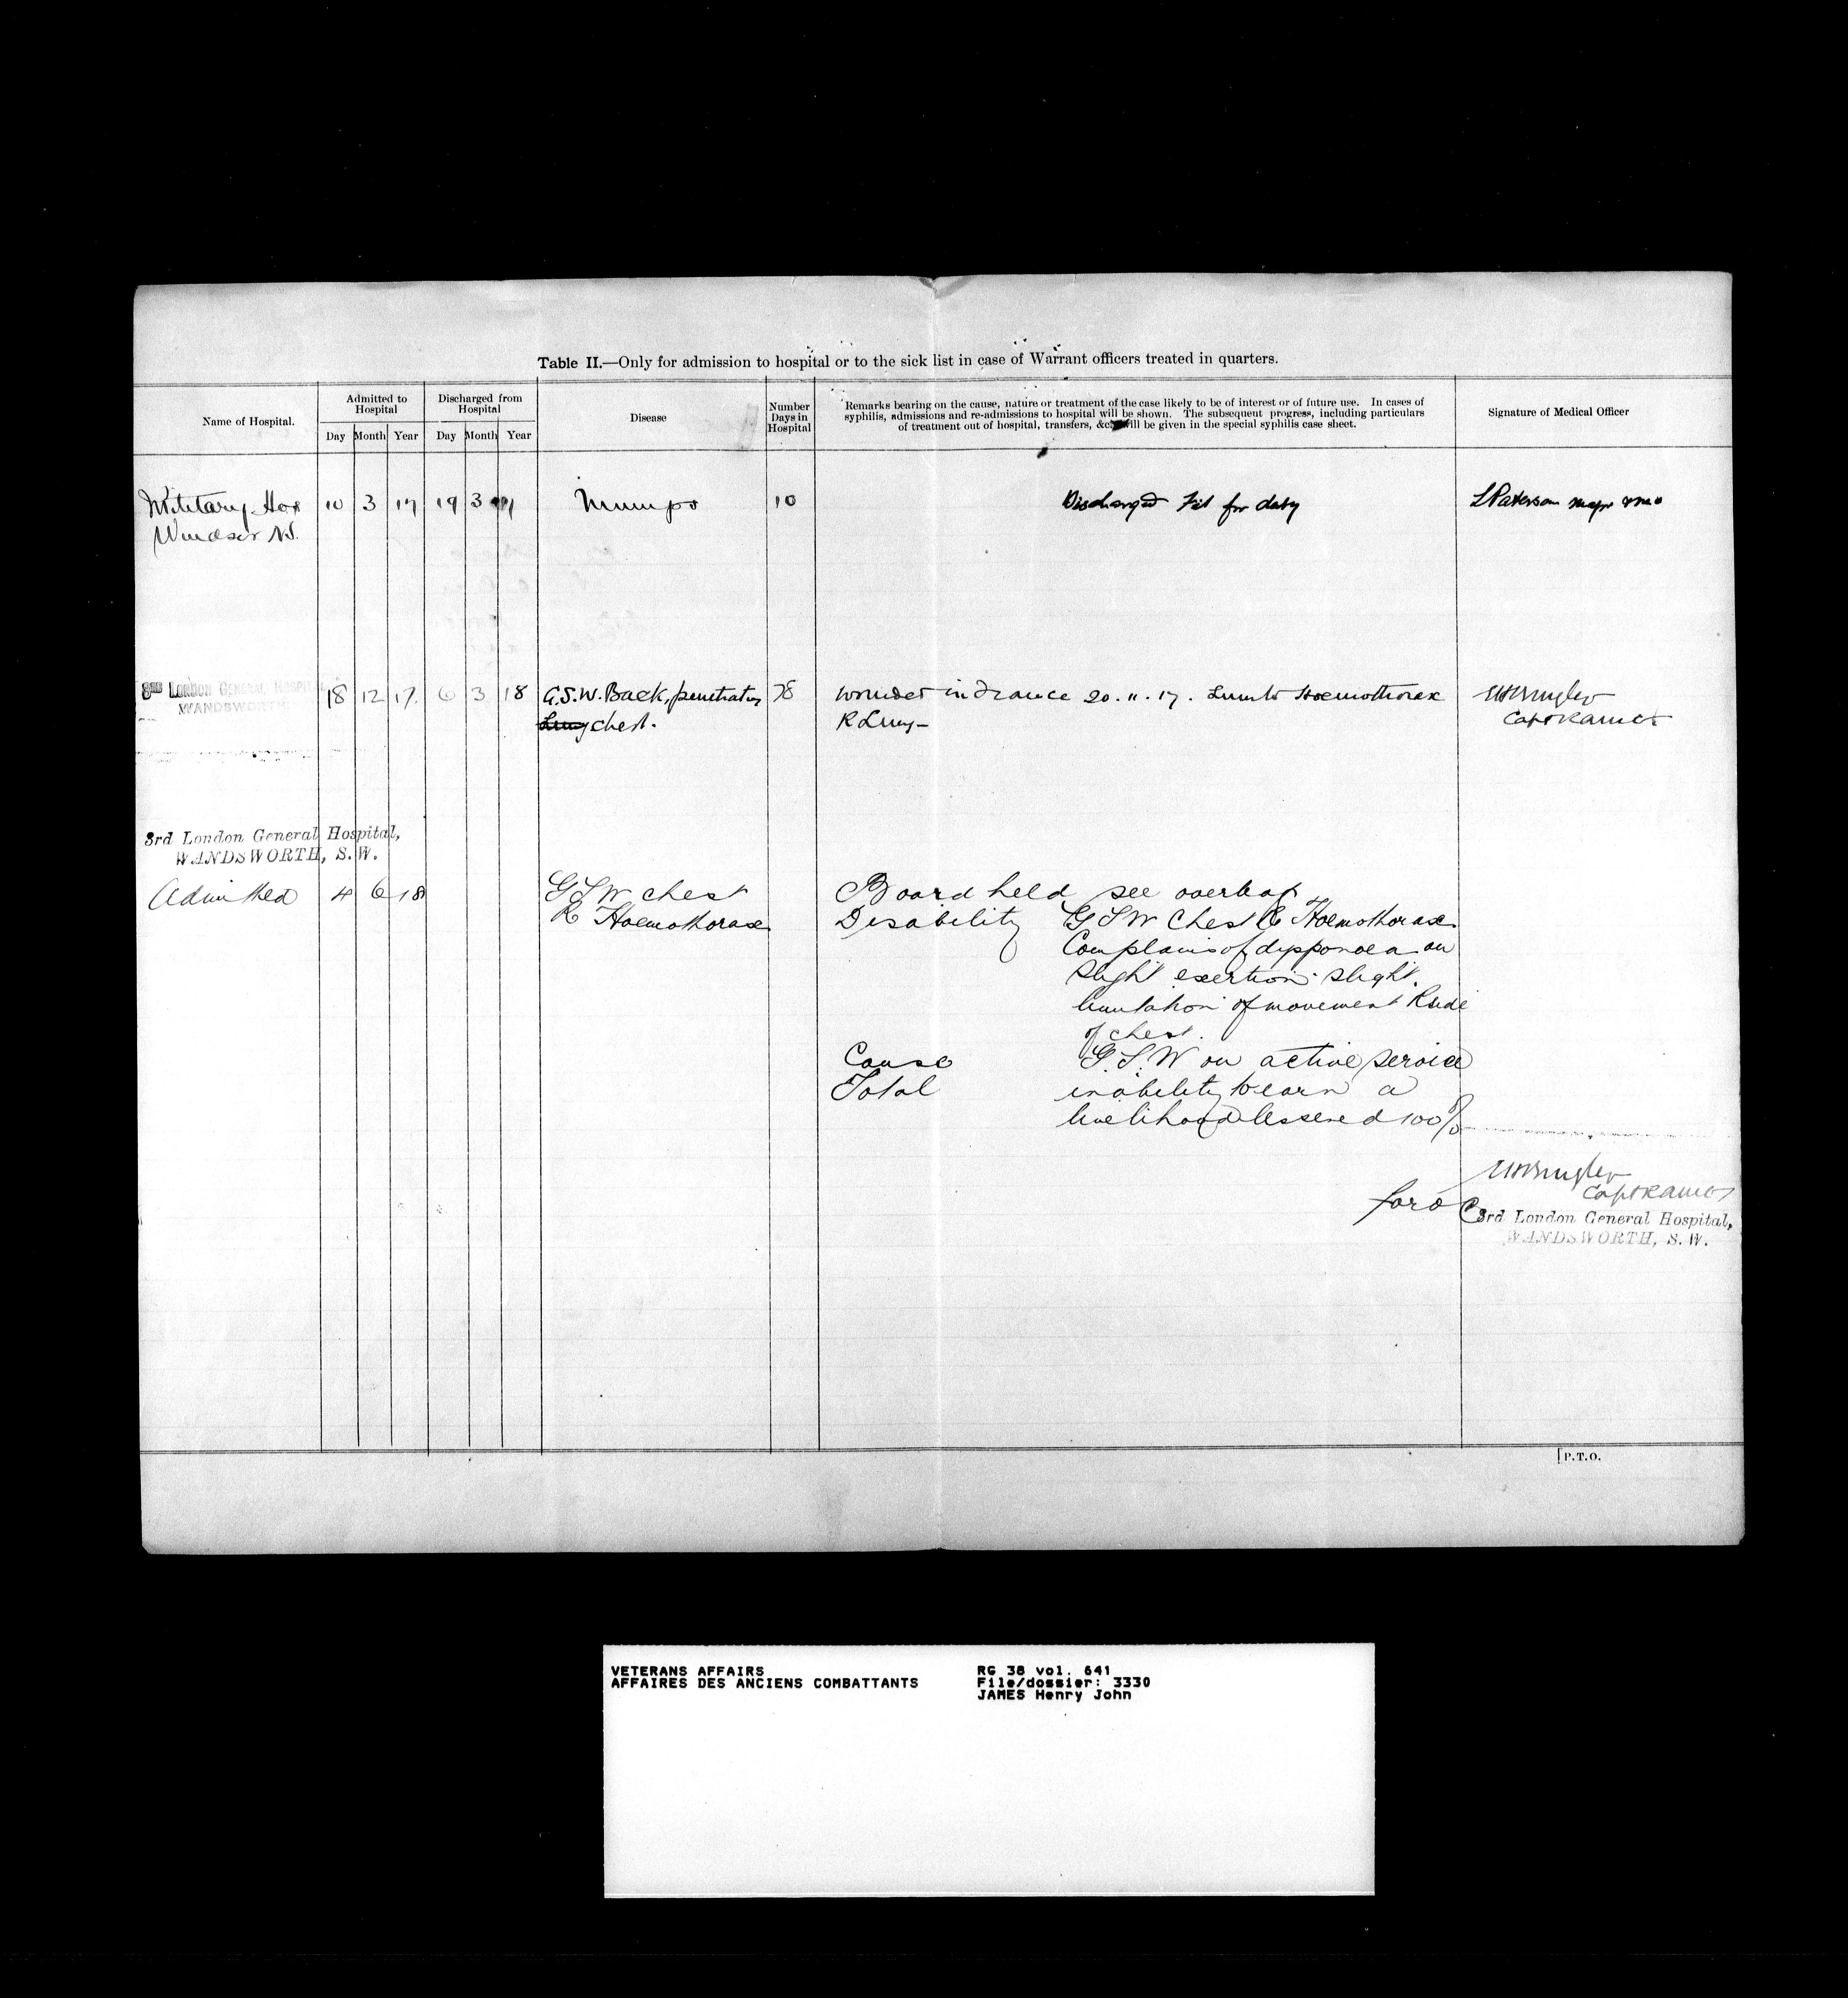 Table II.—Only for admission to hospital or to the sick list in case of Warrant officers treated in quarters.
Name of Hospital.
Admitted to Hospital
Day Month Year
Discharged from Hospital
Day Month Year
Disease
Number Days in Hospital
Remarks bearing on the cause, nature or treatment of the case likely to be of interest or of future use. In cases of
syphilis, admissions and re-admissions to hospital will be shown. The subsequent progress, including particulars
of treatment out of hospital, transfers, &c. will be given in the special syphilis case sheet.
Signature of Medical Officer
Military Hos 10 3 17 19 3 17 Mumps 10 Discharged Fit for duty L Paterson Major
Windsor N.S.
3RD LONDON GENERAL HOSPITAL 18 12 17. 6 3 18 G.S.W. Back, penetrating 78 wounded in France 20.11.17. Haemothorax
WANDSWORTH chest. R Lung - Capt RAMC
3rd London General Hospital,
WANDSWORTH, S.W.
Admitted 4 6 18 GSW chest Board held see overleaf
R Haemothorax Disability GSW Chest R Haemothorax
Complains of dyspnoea on
slight exertion. slight.
limitation of movement R side
of chest.
Cause G.S.W on active service
Total inability to earn a
livelihood lessened 100%
Capt RAMC
for O C
3rd London General Hospital,
WANDSWORTH, S.W.
[P.T.O.
VETERANS AFFAIRS RG 38 vol. 641
AFFAIRES DES ANCIENS COMBATTANTS File/dossier: 3330
JAMES Henry John